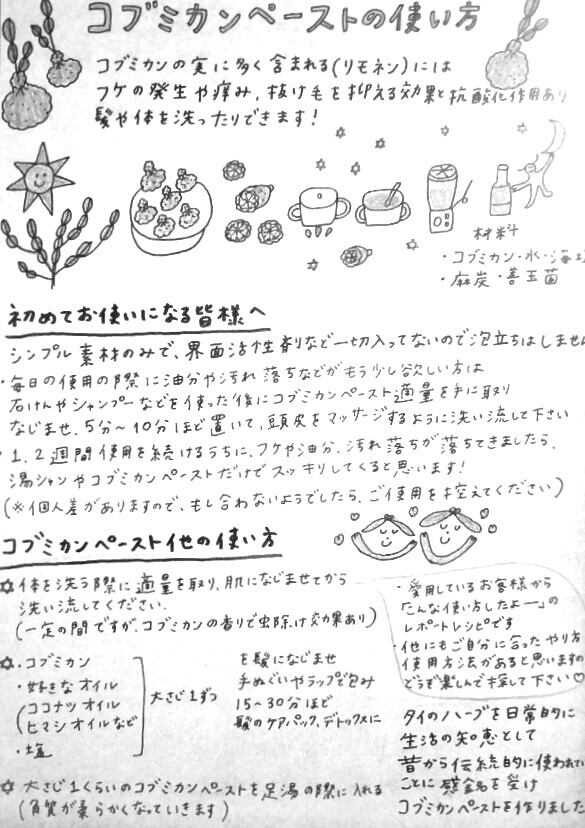 コブミカンペーストの使い方
コブミカンの実に多く含まれる(リモネン)には
フケの発生や痒み、抜け毛を抑える効果と抗酸化作用あり
髪や体を洗ったりできます!
材料
・コブミカン・水・海塩
・麻炭・善玉菌
初めてお使いになる皆様へ
シンプル素材のみで、界面活性剤など一切入ってないので泡立ちはしません
・毎日の使用の際に油分や汚れ落ちなどがもう少し欲しい方は
石けんやシャンプーなどを使った後にコブミカンペースト適量を手に取り
なじませ、5分〜10分ほど置いて、頭皮をマッサージするように洗い流して下さい
・1、2週間使用を続けるうちに、フケや油分、汚れ落ちが落ちてきましたら、
湯シャンやコブミカンペーストだけでスッキリしてくると思います!
(※個人差がありますので、もし合わないようでしたら、ご使用を控えてください)
コブミカンペースト他の使い方
☆体を洗う際に適量を取り、肌になじませてから
洗い流してください。
(一定の間ですが、コブミカンの香りで虫除け効果あり)
☆・コブミカン
・好きなオイル
(ココナツオイル
ヒマシオイルなど)
・塩
大さじ1ずつ
を髪になじませ
手ぬぐいやラップで包み
15〜30分ほど
髪のケアパック、デトックスに
☆大さじ1くらいのコブミカンペーストを足湯の際に入れる
(角質が柔らかくなっていきます)
・愛用しているお客様から
「こんな使い方したよー」の
レポートレシピです
・他にもご自分に合ったやり方
使用方法があると思いますの
どうぞ楽しんで探して下さい♡
タイのハーブを日常的に
生活の知恵として
昔から伝統的に使われてい
ことに感銘を受け
コブミカンペーストを作りました